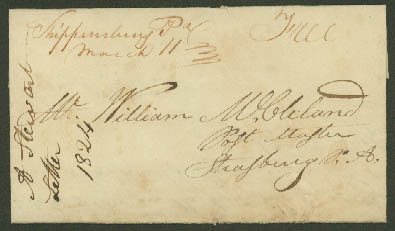 Shippensburg Pa
March 11
Free
Mr. William McCleland
Post Master
Strasburg P. A.
A Stewart
Letter
1824